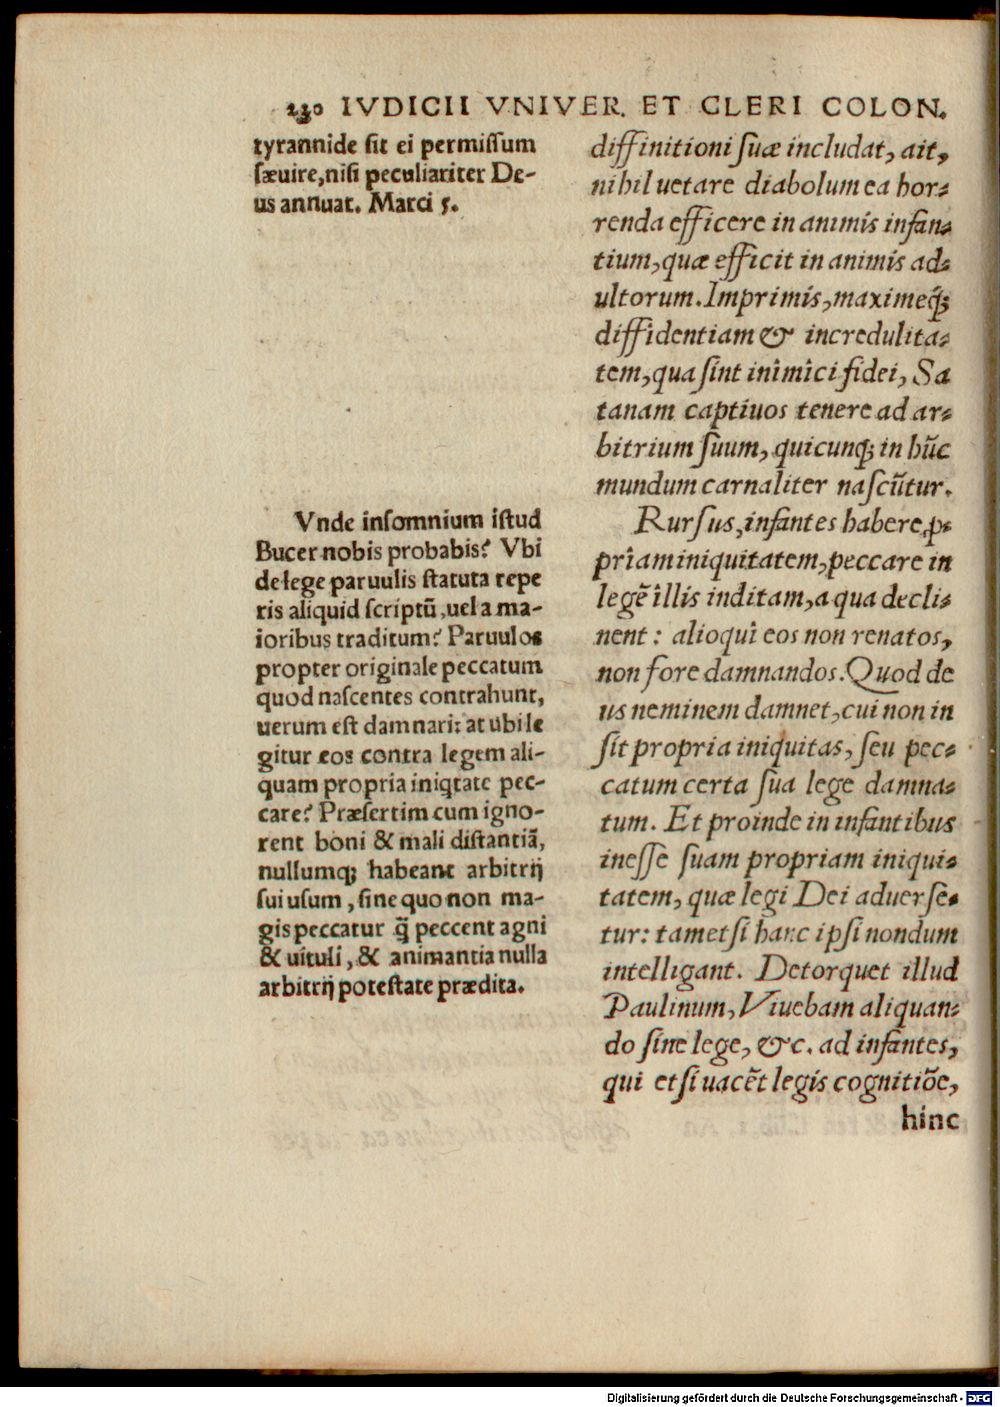 230 IVDICII VNIVER. ET CLERI COLON.
tyrannide sit ei permissum
sæuire, nisi peculiariter De-
us annuat. Marci 5.
Vnde insomnium istud
Bucer nobis probabis? Vbi
de lege paruulis statuta repe
ris aliquid scriptū, uel a ma-
ioribus traditum? Paruulos
propter originale peccatum
quod nascentes contrahunt,
uerum est damnari: at ubi le
gitur eos contra legem ali-
quam propria iniqtate pec-
care? Præsertim cum igno-
rent boni & mali distantiā,
nullumq; habeant arbitrij
sui usum, sine quo non ma-
gis peccatur q̄ peccent agni
& uituli, & animantia nulla
arbitrij potestate prædita.
diffinitioni suæ includat, ait,
nihil uetare diabolum ea hor-
renda efficere in animis infan-
tium, quæ efficit in animis ad-
ultorum. Imprimis, maximeq́;
diffidentiam & incredulita-
tem, qua sint inimici fidei, Sa
tanam captiuos tenere ad ar-
bitrium suum, quicunq; in hūc
mundum carnaliter nascūtur.
Rursus, infantes habere ꝓ-
priam iniquitatem, peccare in
legē illis inditam, a qua decli-
nent: alioqui eos non renatos,
non fore damnandos. Quod de
us neminem damnet, cui non in
sit propria iniquitas, seu pec-
catum certa sua lege damna-
tum. Et proinde in infantibus
inesse suam propriam iniqui-
tatem, quæ legi Dei aduerse-
tur: tametsi hanc ipsi nondum
intelligant. Detorquet illud
Paulinum, Viuebam aliquan-
do sine lege, &c. ad infantes,
qui etsi uacēt legis cognitiōe,
hinc
Digitalisierung gefördert durch die Deutsche Forschungsgemeinschaft - DFG